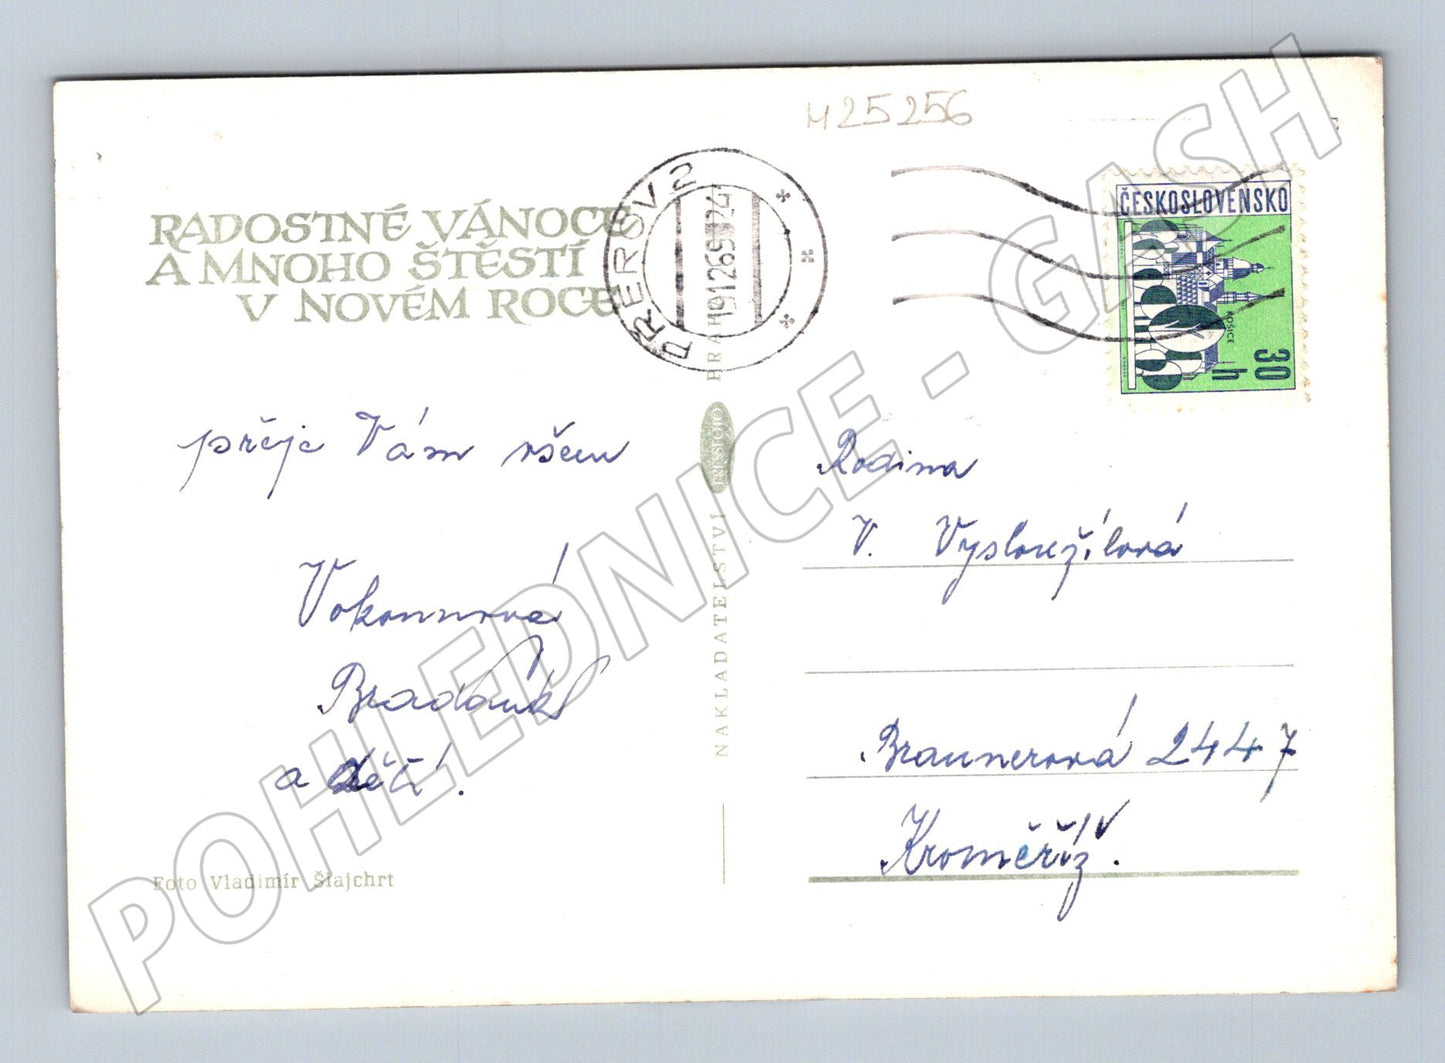 M25256
RADOSTNÉ VÁNOCE
A MNOHO ŠTĚSTÍ
V NOVÉM ROCE
PŘEROV 2
19.12.69-24
ČESKOSLOVENSKO
KOŠICE
30 h
přeje Vám všem
Vokounová
a děti.
Foto Vladimír Šlajchrt
NAKLADATELSTVÍ
PRESSFOTO
Rodina
V. Vysloužilová
Braunerová 2447
Kroměříž.
POHLEDNICE - GASH